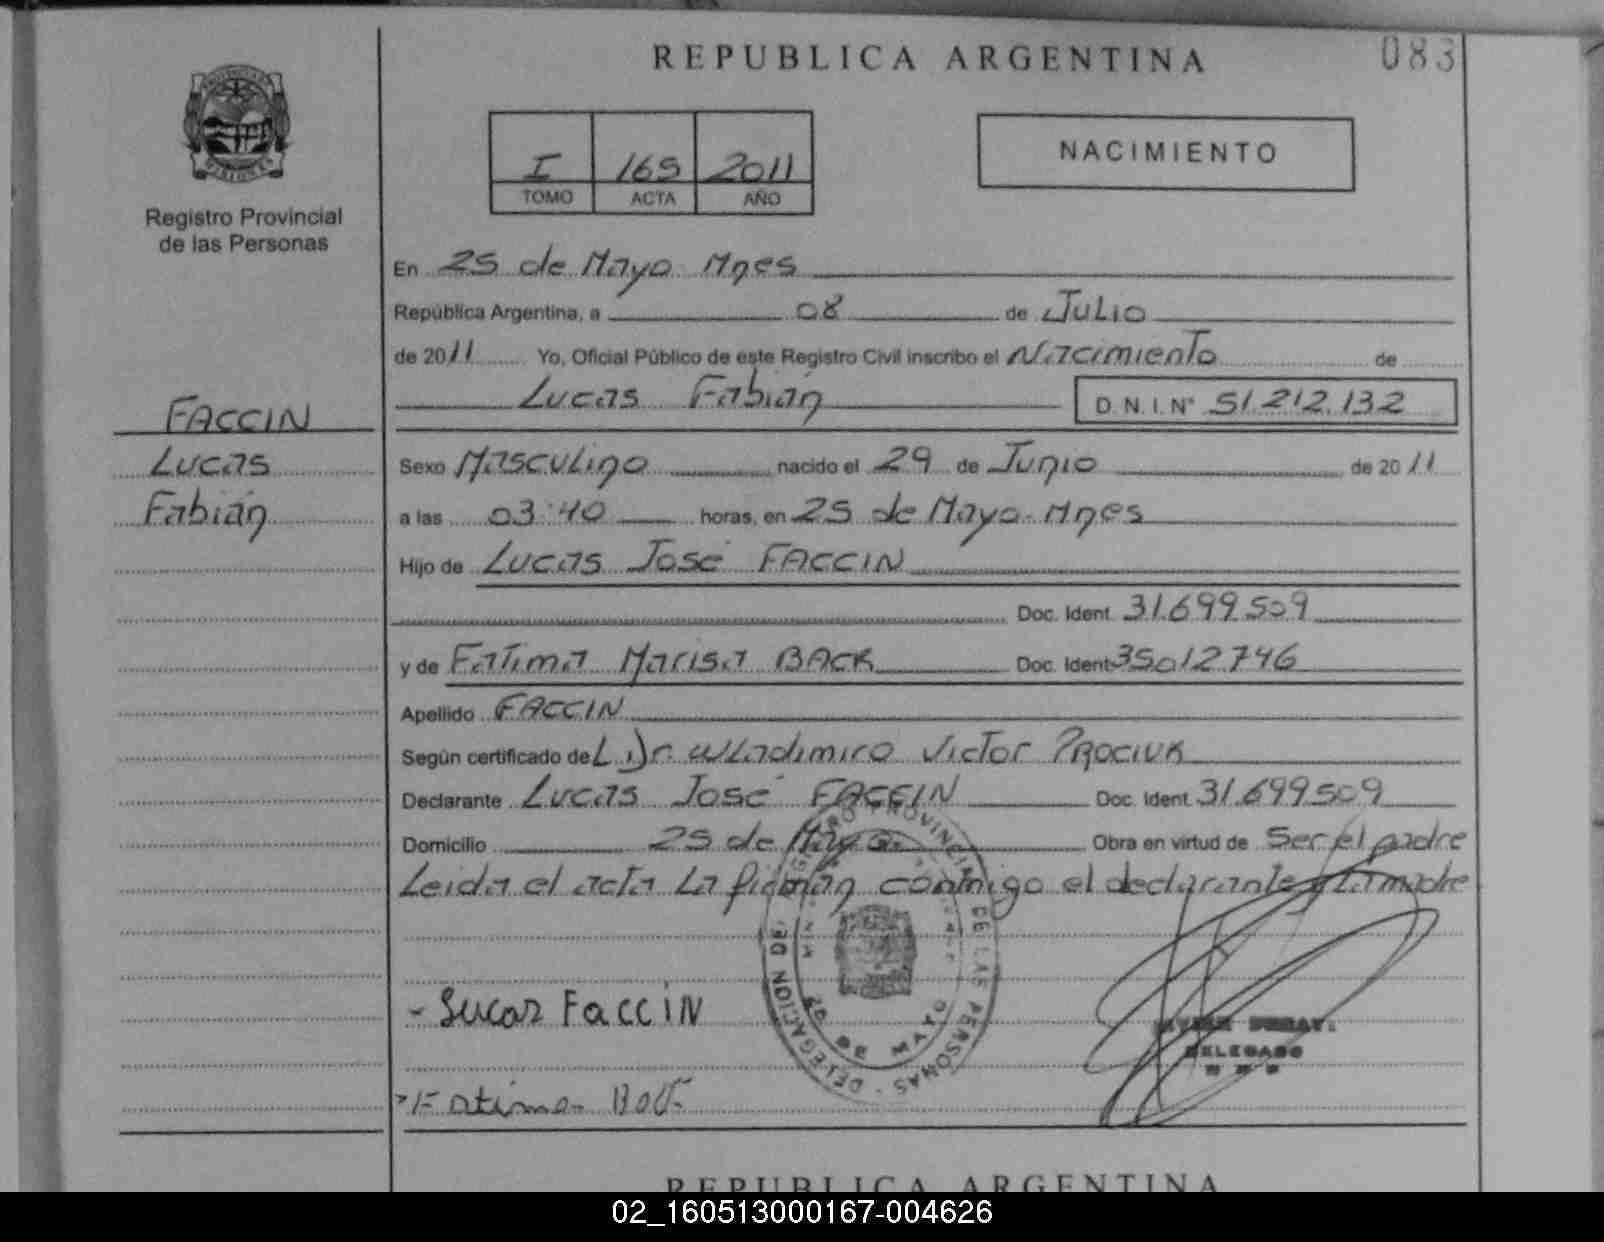 REPUBLICA ARGENTINA
083
I 165 2011
TOMO ACTA AÑO
NACIMIENTO
MISIONES
Registro Provincial
de las Personas
FACCIN
Lucas
Fabián
En 25 de Mayo Mnes
República Argentina, a 08 de Julio
de 2011 Yo, Oficial Público de este Registro Civil inscribo el Nacimiento de
Lucas Fabián D.N.I.N° 51.212.132
Sexo Masculino nacido el 29 de Junio de 2011
a las 03:40 horas, en 25 de Mayo-Mnes
Hijo de Lucas José FACCIN
Doc. Ident. 31.699.509
y de Fatima Marisa BACK Doc. Ident 35012746
Apellido FACCIN
Según certificado de Dr. Wladimiro Victor PROCIUK
Declarante Lucas José FACCIN Doc. Ident. 31.699509
Domicilio 25 de Mayo Obra en virtud de Ser el padre
Leida el acta La firman conmigo el declarante y La madre
REGISTRO PROVINCIAL DE LAS PERSONAS - DELEGACION DE
25 DE MAYO
- Lucas FaccIN
Fatima
DELEGADO
REPUBLICA ARGENTINA
02_160513000167-004626